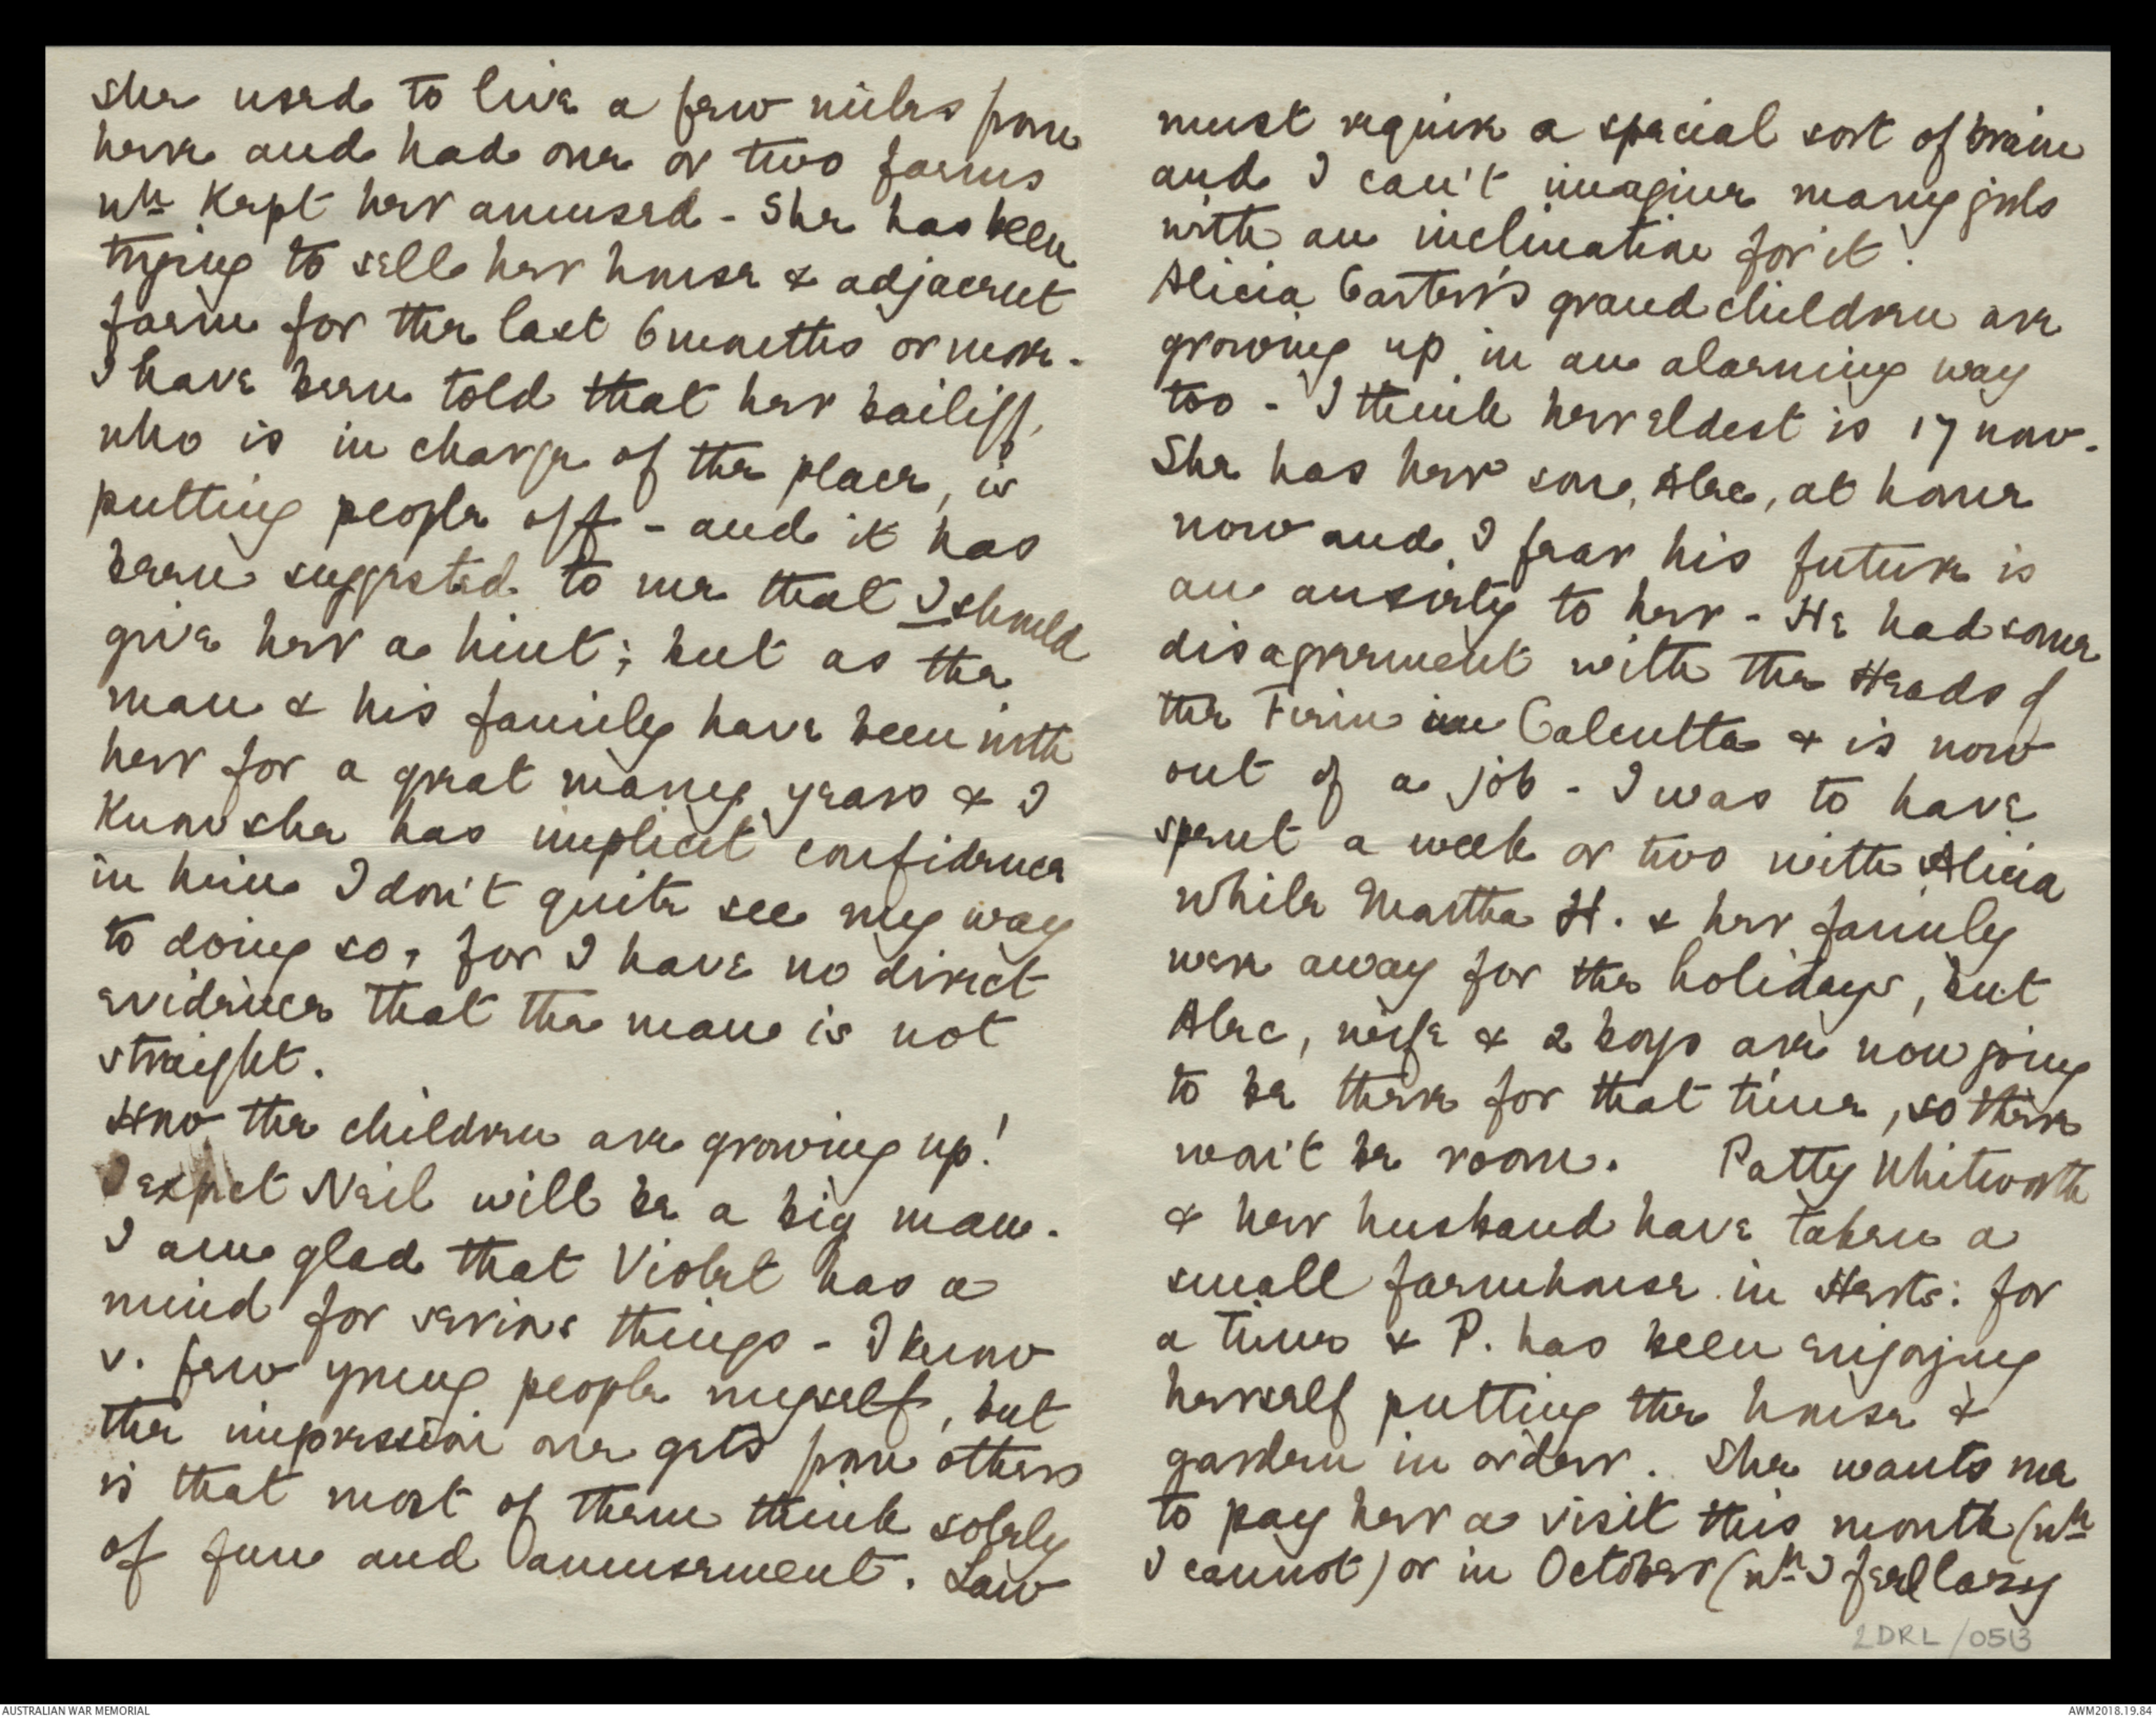 she used to live a few miles from
here and had one or two farms
wh kept her amused - She has been
trying to sell her house & adjacent
farm for the last 6 months or more.
I have been told that her bailiff,
who is in charge of the place, is
putting people off - and it has
been suggested to me that I should
give her a hint; but as the
man & his family have been with
her for a great many years & I
know she has implicit confidence
in him I don't quite see my way
to doing so, for I have no direct
evidence that the man is not
straight.
How the children are growing up!
I expect Neil will be a big man.
I am glad that Violet has a
mind for serious things - I know
v. few young people myself, but
the impression one gets from others
is that most of them think solely
of fun and amusement. Law
must require a special sort of brain
and I can't imagine many girls
with an inclination for it!
Alicia Garter's grandchildren are
growing up in an alarming way
too - I think her eldest is 17 now.
She has her son, Alec, at home
now and I fear his future is
an anxiety to her - He had some
disagreement with the Heads of
the Firm in Calcutta & is now
out of a job - I was to have
spent a week or two with Alicia
while Martha H. & her family
were away for the holidays, but
Alec, wife & 2 boys are now going
to be there for that time, so there
won't be room. Patty Whitworth
& her husband have taken a
small farmhouse in Herts: for
a time & P. has been enjoying
herself putting the house &
garden in order. She wants me
to pay her a visit this month (wh
I cannot) or in October (wh I feel lazy
2DRL/0513
AUSTRALIAN WAR MEMORIAL
AWM2018.19.84